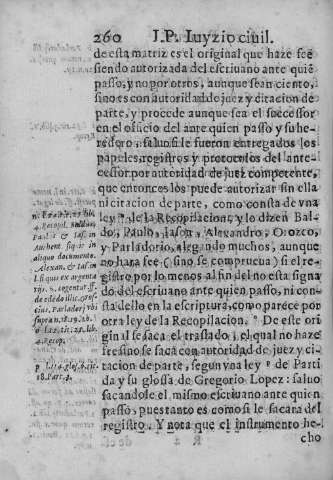 260 I.P. Iuyzio ciuil.
de esta matriz es el original que haze fee
siendo autorizada del escriuano ante quiē
passo, y no por otros, aunque sean ciento,
sino es con autoridad de juez y citacion de
parte, y procede aunque sea el successor
en el oficio del ante quien passo y su he-
redero, saluo si le fueron entregados los
papeles, registros y protocolos del ante-
cessor por autoridad de juez competente,
que entonces los puede autorizar sin ella
ni citacion de parte, como consta de vna
ley de la Recopilacion, y lo dizen Bal-
do, Paulo, Jason, Alexandro, Orozco,
y Parladorio, alegando muchos, aunque
no hara fee (sino se comprueua) si el re-
gistro por lo menos al fin del no esta signa
do del escriuano ante quien passo, ni con
sta dello en la escriptura, como parece por
otra ley de la Recopilacion. º De este ori
ginal se saca el traslado, el qual no haze
free sino se saca con autoridad de juez y ci
tacion de parte, segun vna ley ᵖ de Parti
da y su glossa de Gregorio Lopez: saluo
sacandole el mismo escriuano ante quien
passó, pues tanto es como si le sacara del
registro. Y nota que el instrumento he-
cho
lib.
4. Recop.
Paul. & Ias. in
Authent. si quis in
aliquo documento.
Alexan. & Ias. in
l. si quis ex argenta
rijs. §. 
de edendo
cius, Parlador. vbi
supra
tit. 25. lib.
4. Recop.
p l.
18. Part. 3.